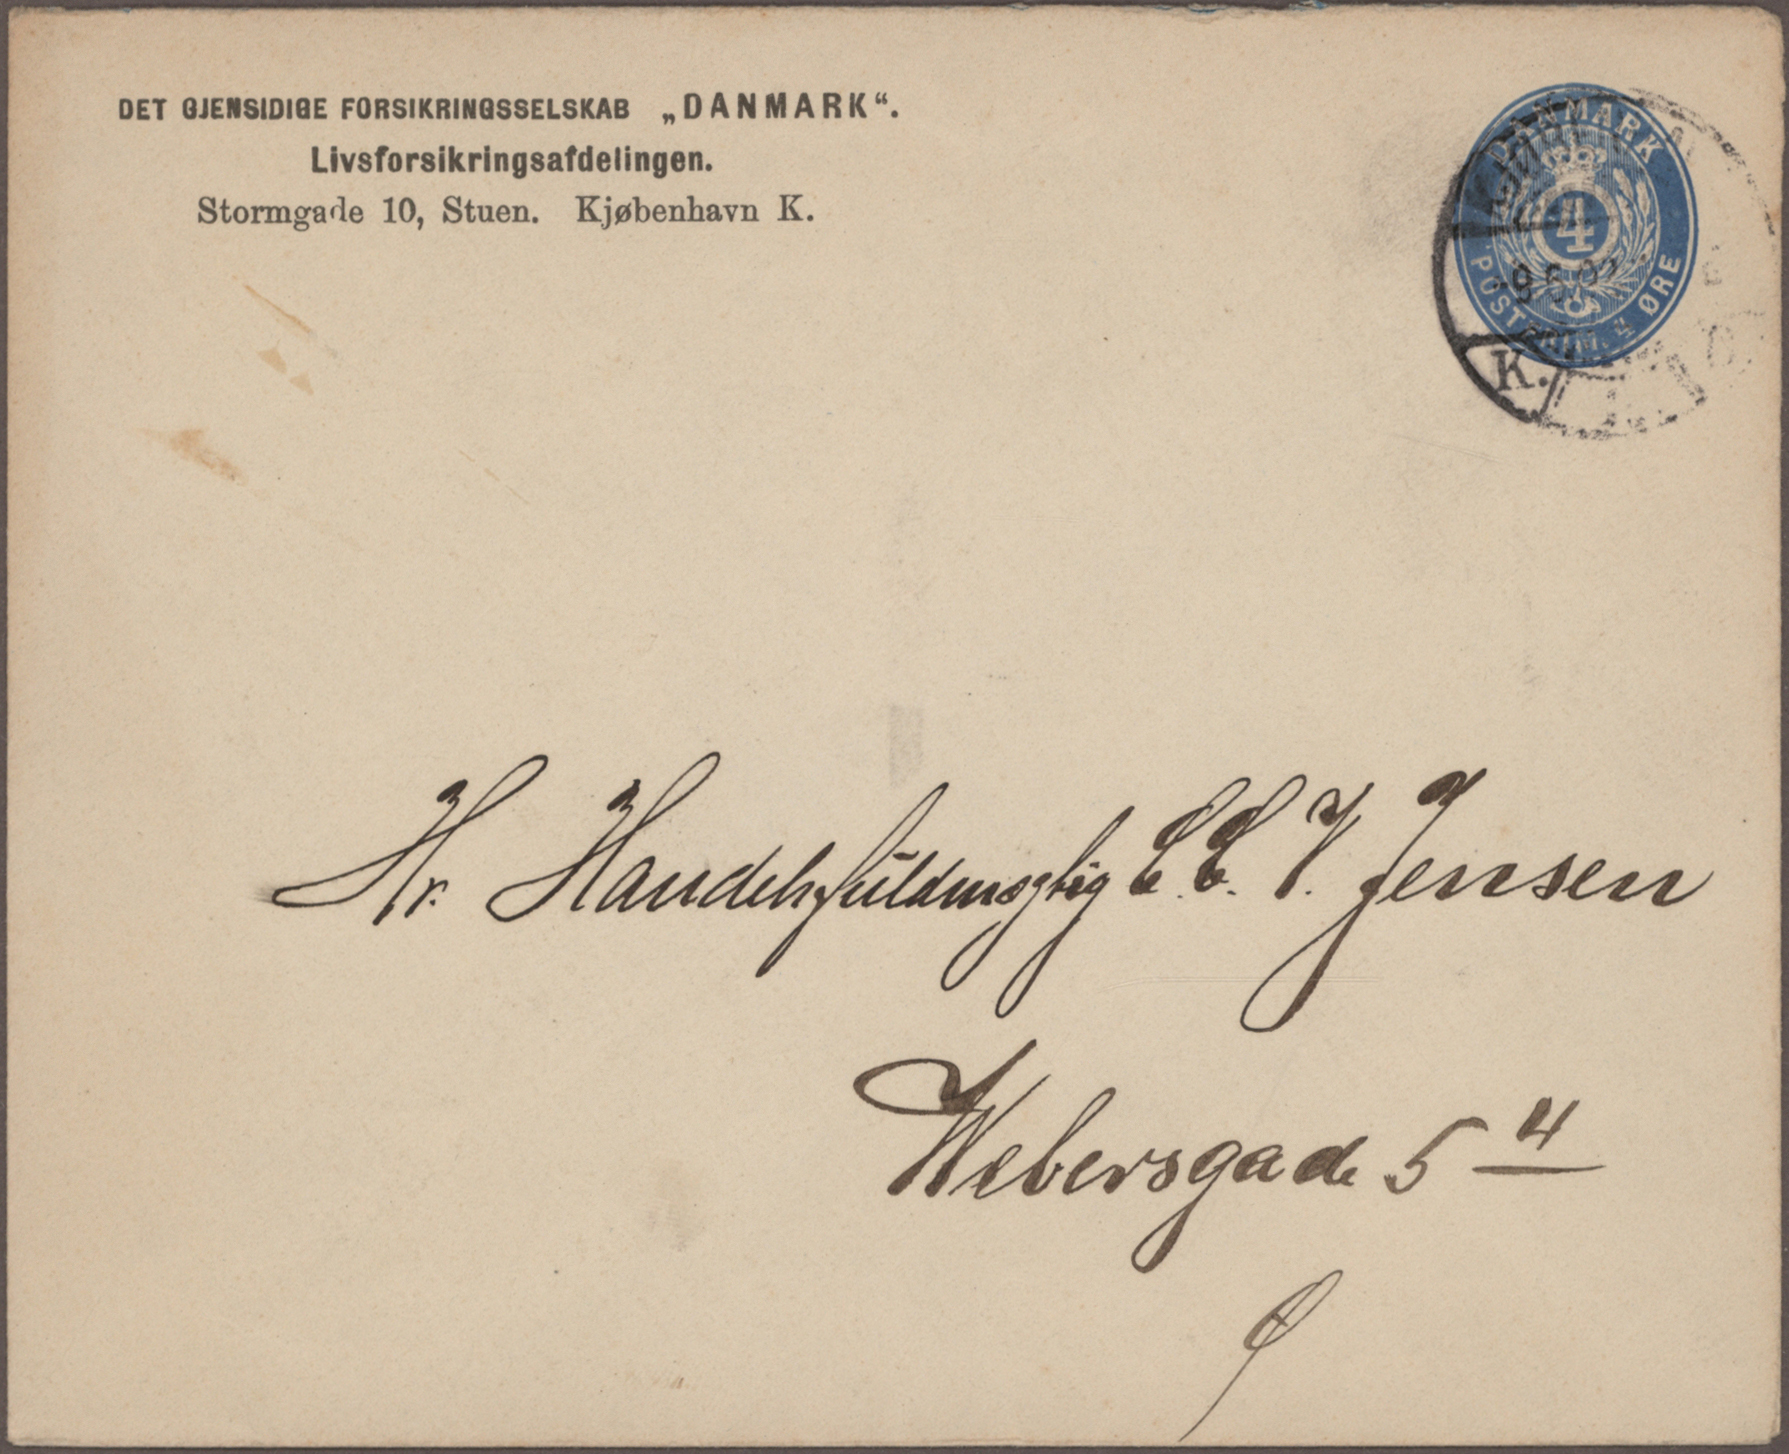 DET GJENSIDIGE FORSIKRINGSSELSKAB „DANMARK“.
Livsforsikringsafdelingen.
Stormgade 10, Stuen. Kjøbenhavn K.
DANMARK
4
POSTFRIM. 4 ØRE
K.
Hr. Handelsfuldmægtig C. C. V. Jensen
Webersgade 5 4
Ø